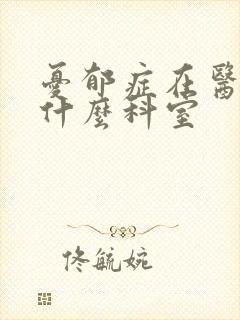 憂郁症在醫
什麼科室
佟毓婉